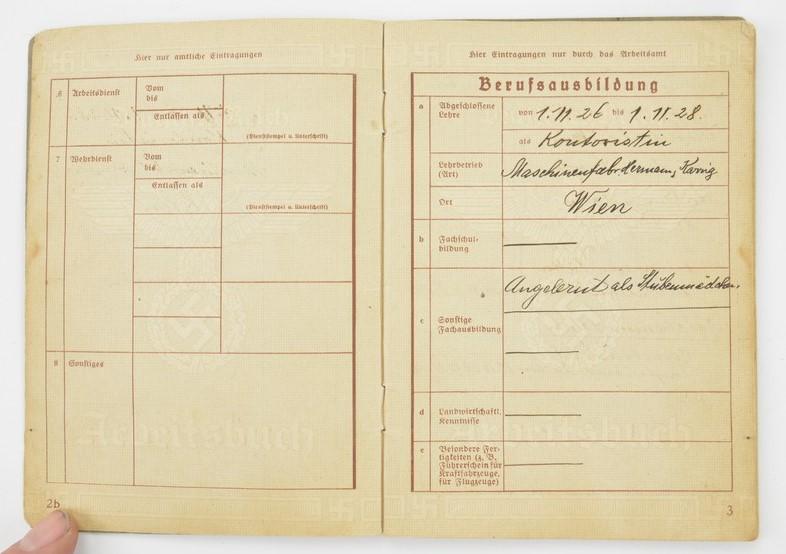 Hier nur amtliche Eintragungen
6 Arbeitsdienst
Vom
bis
Entlassen als
(Dienststempel u. Unterschrift)
7 Wehrdienst
Vom
bis
Entlassen als
(Dienststempel u. Unterschrift)
8 Sonstiges
2b
Hier Eintragungen nur durch das Arbeitsamt
Berufsausbildung
a Abgeschlossene
Lehre
von 1.11.26 bis 1.11.28.
als Kontoristin
Lehrbetrieb
(Art)
Maschinenfabr. Hermann,
Ort
Wien
b Fachschul-
bildung
Angelernt als Stubenmädchen.
c Sonstige
Fachausbildung
d Landwirtschaftl.
Kenntnisse
e Besondere Fer-
tigkeiten (z. B.
Führerschein für
Kraftfahrzeuge,
für Flugzeuge)
3
Arbeitsbuch